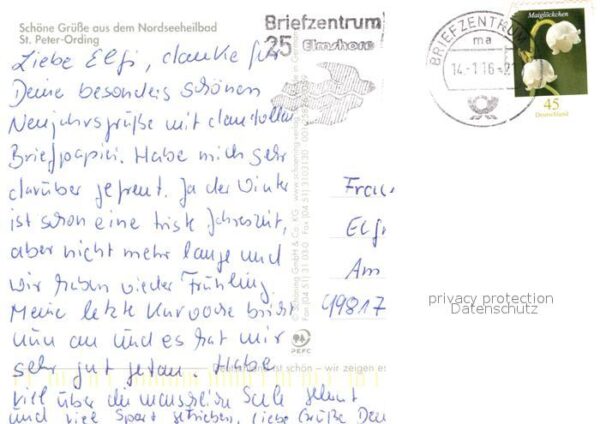 Schöne Grüße aus dem Nordseeheilbad
St. Peter-Ording
Liebe Elfi, danke für
Deine besonders schönen
Neujahrsgrüße mit dem tollen
Briefpapier. Habe mich sehr
darüber gefreut. Ja der Winter
ist schon eine triste Jahreszeit,
aber nicht mehr lange und
wir haben wieder Frühling.
Meine letzte Kurwoche bricht
nun an und es hat mir
sehr gut getan. Habe
viel über die menschliche Seele gelernt
und viel Sport getrieben. Liebe Grüße Dein
Briefzentrum
25 Elmshorn
BRIEFZENTRUM
ma
14.-1.16-21
Maiglöckchen
45
Deutschland
© Schöning GmbH & Co. KG
Frau
Elf
Am
49817
privacy protection
Datenschutz
PEFC
Deutschland ist schön – wir zeigen es